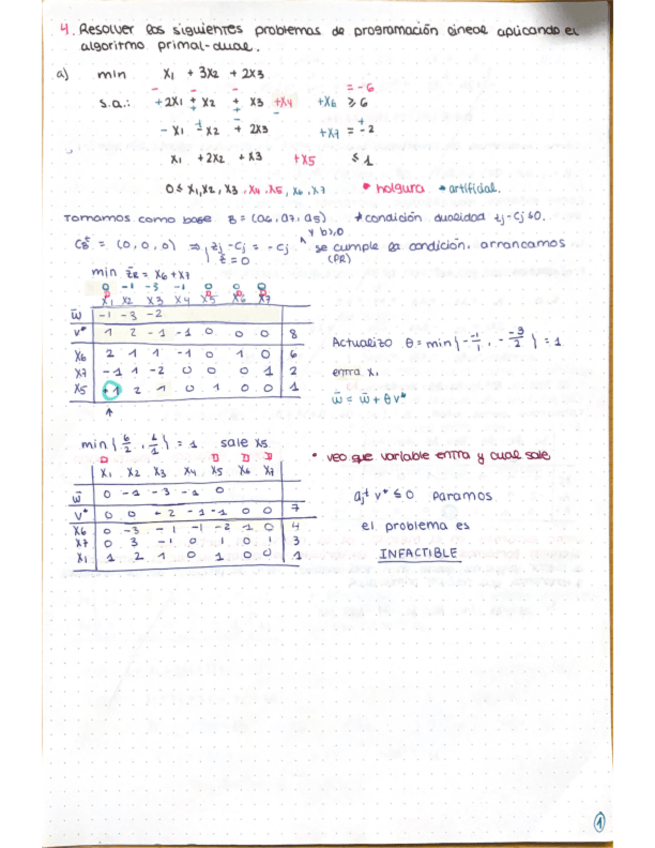 4. Resolver los siguientes problemas de programación lineal aplicando el
algoritmo primal-dual.
a) min x1 + 3x2 + 2x3
= -6
s.a.: +2x1 + x2 + x3 +x4 +x6 ≥ 6
- x1 - x2 + 2x3 +x7 = -2
x1 + 2x2 + x3 +x5 ≤ 1
0 ≤ x1, x2, x3, x4, x5, x6, x7 • holgura • artificial.
Tomamos como base B = (a6, a7, a5) * condición dualidad zj - cj ≤ 0.
y b≥0
CB^t = (0, 0, 0) ⇒ zj - cj = - cj se cumple la condición, arrancamos
z = 0 (PR)
min ZR = x6 + x7
0 -1 -3 -1 0 0 0
x1 x2 x3 x4 x5 x6 x7
w̄ -1 -3 -2
v* 1 2 -1 -1 0 0 0 8
x6 2 1 1 -1 0 1 0 6
x7 -1 1 -2 0 0 0 1 2
x5 +1 2 1 0 1 0 0 1
Actualizo θ = min{ - -1/1, - -3/2 } = 1
entra x1
w̄ = w̄ + θ v*
min { 6/2, 1/1 } = 1 sale x5
• veo que variable entra y cual sale
x1 x2 x3 x4 x5 x6 x7
w̄ 0 -1 -3 -1 0
v* 0 0 -2 -1 -1 0 0 7
x6 0 -3 -1 -1 -2 1 0 4
x7 0 3 -1 0 1 0 1 3
x1 1 2 1 0 1 0 0 1
aj^t v* ≤ 0 paramos
el problema es
INFACTIBLE
1